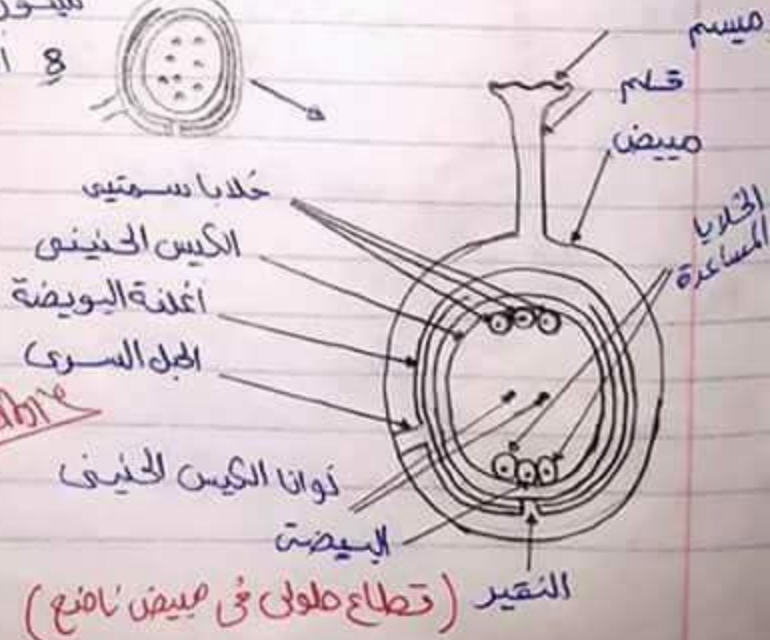 8 ا
ميسم
قلم
مبيض
الخلايا
المساعدة
خلايا سمتيه
الكيس الجنينى
اغلفة البويضة
الحبل السرى
نواتا الكيس الجنينى
البيضة
النقير
(قطاع طولى فى مبيض ناضج)